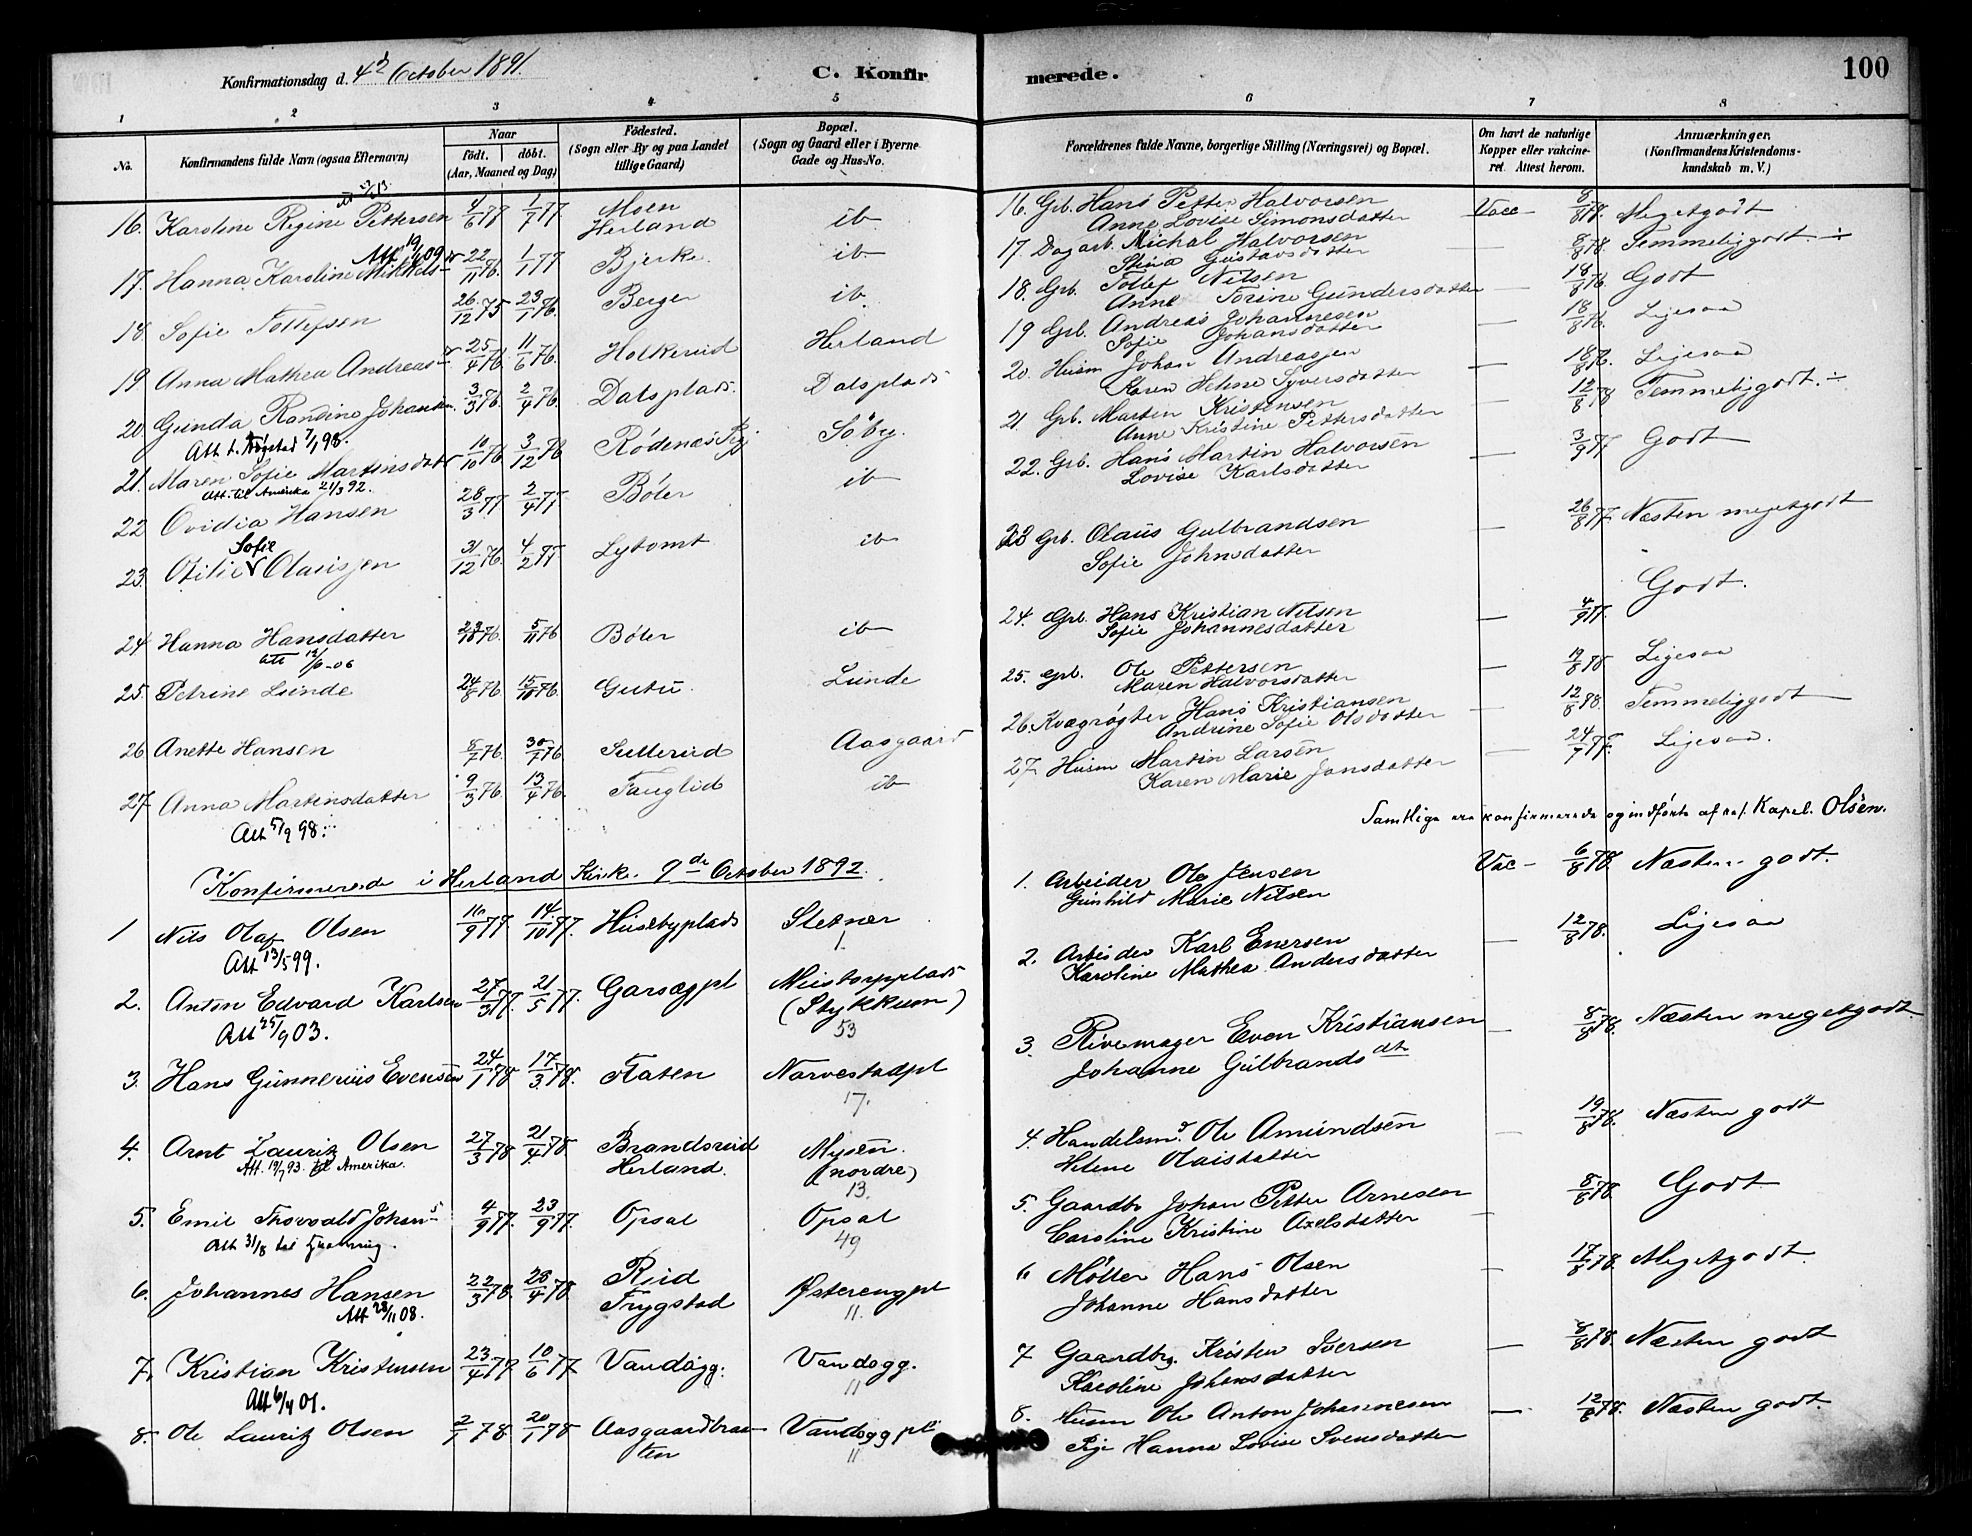 Konfirmationsdag d. 4d October 1891.
C. Konfir
merede.
100
1 2 3 4 5 6 7 8
No.
Konfirmandens fulde Navn (ogsaa Efternavn)
Naar
födt. döbt.
(Aar, Maaned og Dag)
Födested.
(Sogn eller By og paa Landet
tillige Gaard)
Bopæl.
(Sogn og Gaard eller i Byerne
Gade og Hus-No.
Forældrenes fulde Navne, borgerlige Stilling (Næringsvei) og Bopæl.
Om havt de naturlige
Kopper eller vakcine-
ret. Attest herom.
Anmærkninger.
(Konfirmandens Kristendoms-
kundskab m. V.)
16. Karoline Regine Pettersen 4/6 77 1/7 77 Moen Herland ib
16. Grb. Hans Petter Halvorsen Vacc 8/8 78. Megetgodt
Anne Lovise Simonsdatter
Att 19/4 09
17. Hanna Karoline Mikkels- 22/11 76. 1/1 77 Bjerke. ib
17. Dagarb. Michal Halvorsen — 8/8 78. Temmeliggodt. ÷
Stina Gustavsdatter
18. Sofie Tollefsen 26/12 75 23/1 76. Berger ib.
18. Grb. Tollef Nilsen — 18/8 76. Godt
Anne Torine Gundersdatter
19. Anna Mathea Andreas- 25/4 76. 11/6 76. Holkerud Herland
19 Grb. Andreas Johannesen — 18/8 76. Ligesaa
Sofie Johansdatter
20. Gunda Randine Johansen. 3/3 76. 2/4 76. Dalsplads. Dalsplads
20. Husm Johan Andreassen — 18/8 76. Ligesaa
Karen Helene Syversdatter
Att t. Trøgstad 7/1 98.
21. Maren Sofie Martinsdatr 10/10 76 3/12 76 Rödenæs Pgj Söby.
21 Grb. Martin Kristensen — 12/8 78 Temmeliggodt. ÷
Anne Kristine Pettersdatter
Att. til Amerika 21/3 92.
22 Ovidia Hansen 28/3 77 2/4 77 Böler ib
22. Grb. Hans Martin Halvorsen — 3/9 77 Godt
Lovise Karlsdatter
Sofie
23. Otilie V Olaussen 31/12 76. 4/2 77 Lytomt ib
23 Grb. Olaus Gulbrandsen — 26/8 77. Næsten megetgodt
Sofie Johnsdatter
24 Hanna Hansdatter 23/10 76. 5/11 76 Böler ib
24. Grb. Hans Kristian Nilsen — 4/9 77. Godt.
Sofie Johannesdatter
Att 12/6-06
25. Petrine Lunde 24/8 76. 15/10 76. Gutu. Lunde
25. Grb. Ole Pettersen — 19/8 78 Ligesaa
Maren Halvorsdatter
26. Anette Hansen 8/7 76. 30/7 76. Sullerud Aasgaard
26. Kvægrøgter Hans Kristiansen — 12/8 88. Temmeliggodt
Andrine Sofie Olsdatter
27 Anna Martinsdatter 9/3 76. 13/4 76. Fauglid ib
27. Husm Martin Larsen — 24/7 77. Ligesaa.
Karen Marie Jansdatter
Att 5/9 98.
Samtlige ere konfirmerede og indförte af res. Kapel. Olsen.
Konfirmerede i Herland Kirke. 9de October 1892.
1 Nils Olaf Olsen 16/9 77. 14/10 77. Husebyplads Sletner
1.
1. Arbeider Ole Jensen Vac — 6/8 78. Næsten godt.
Gunhild Marie Nilsen
Att 13/5 99.
2. Anton Edvard Karlsen 27/3 77. 21/5 77. Garsægpl Meistorpplads
(Stykkum)
53
2. Arbeider Karl Enersen — 12/8 78. Ligesaa
Karoline Mathea Andersdatter
Att 25/9 03.
3. Hans Gunnerius Evensen 24/1 78 17/3 78. Flaten Narvestadpl
17.
3. Rivemager Even Kristiansen — 8/8 78. Næsten megetgodt.
Johanne Gulbrandsdtr
4. Arnt Lauritz Olsen 27/3 78 21/4 78. Brandsrud Herland. Mysen. (nordre)
13.
4. Handelsmd. Ole Amundsen — 19/8 78. Næsten godt
Helene Olaisdatter
Att. 19/7 93. til Amerika.
5. Emil Thorvald Johans- 4/9 77. 23/9 77. Opsal Opsal
49
5. Gaardbr Johan Petter Arnesen — 8/8 78. Godt
Caroline Kristine Axelsdatter
Att 31/8 til
6. Johannes Hansen 22/3 78. 28/4 78 Rud Trygstad Østerengpl
11.
6 Möller Hans Olsen — 17/8 78. Megetgodt.
Johanne Hansdatter
Att 28/11 08.
7. Kristian Kristensen 23/4 77 10/6 77 Vandugg. Vandogg.
11
7 Gaardbrg. Kristen Iversen — 8/8 78. Næsten godt
Karoline Johansdatter
Att 6/4 01.
8. Ole Lauritz Olsen 2/1 78 20/1 78 Aasgaardbraa-
ten Vandoggpl
11
8. Husm Ole Anton Johannesen — 12/8 78. Næsten godt.
Pige Hanna Lovise Svensdatter